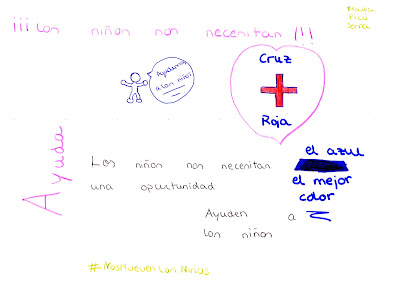 ¡¡¡Los niños nos necesitan!!!
Picó
Serra
Cruz
Roja
Ayudemos
a los niños
Ayuda
Los niños nos necesitan
una oportunidad
Ayuden a
los niños
el azul
el mejor
color
#NosMuevenLosNiños